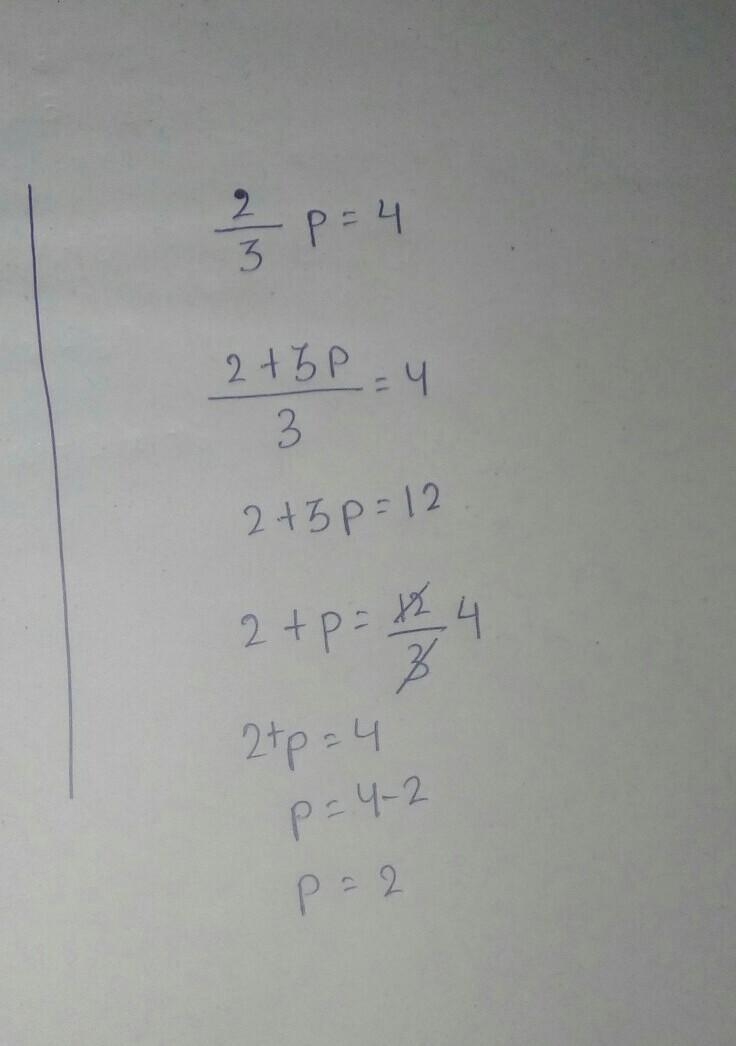 2/3 p = 4
2+3p/3 = 4
2+3p = 12
2 + p = 12/3 4
2+p = 4
p = 4-2
p = 2